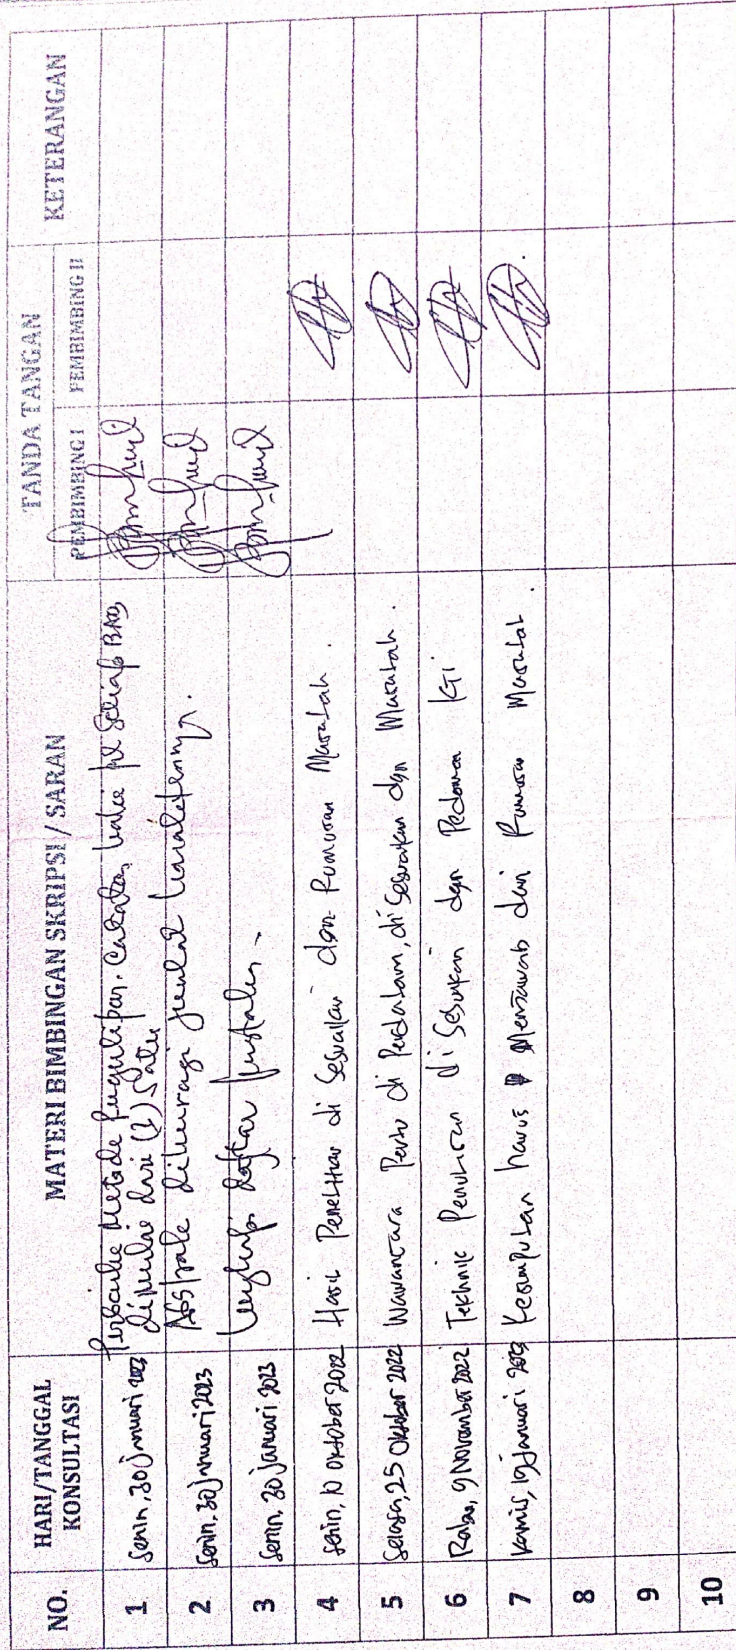 NO. HARI/TANGGAL KONSULTASI MATERI BIMBINGAN SKRIPSI / SARAN TANDA TANGAN KETERANGAN
PEMBIMBING I PEMBIMBING II
1 Senin, 30 januari 2023 Perbaiki Metode Pengutipan. Catatan kaki pd Setiap BAB,
dimulai dari (1) Satu
2 Senin, 30 januari 2023 Abstrak dikurangi jumlah kalimatnya.
3 Senin, 30 januari 2023 Lengkapi daftar pustaka.
4 Senin, 10 oktober 2022 Hasil Penelitian di Sesuaikan dgn Rumusan Masalah.
5 Selasa, 25 Oktober 2022 Wawancara Perlu di Perdalam, di Sesuaikan dgn Masalah.
6 Rabu, 9 November 2022 Tekhnik Penulisan di Sesuaikan dgn Pedoman KTI
7 Kamis, 19 januari 2023 Kesimpulan harus Menjawab dari Rumusan Masalah.
8
9
10